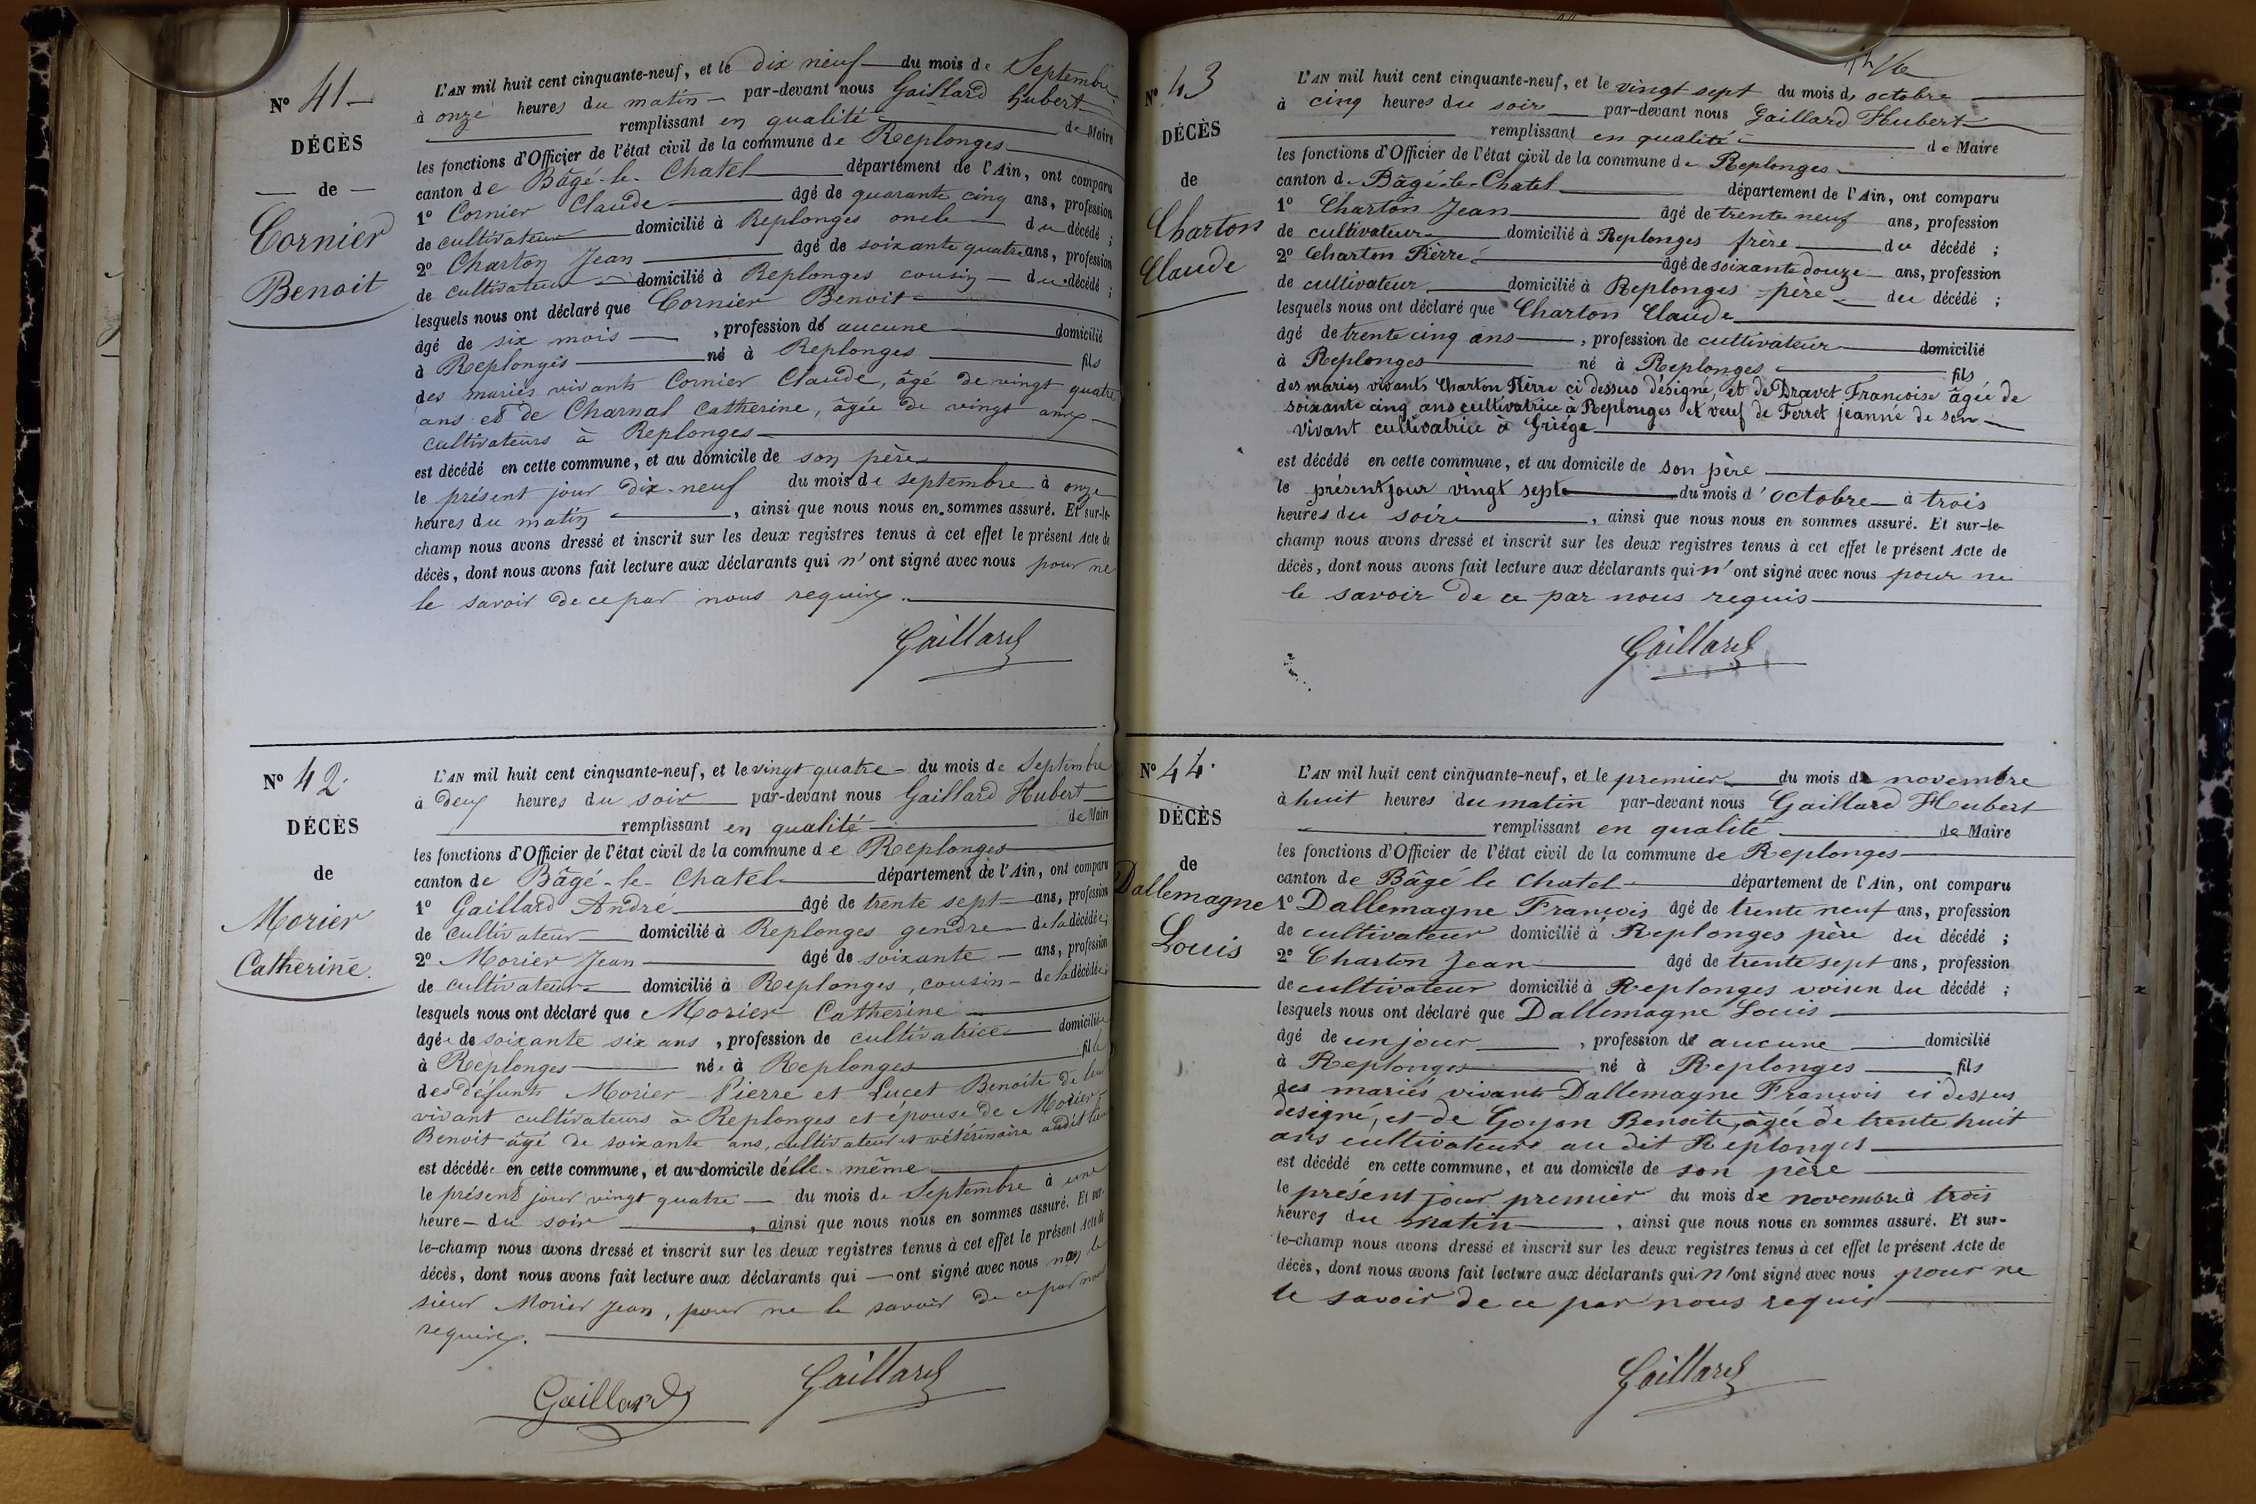 N° 41
DÉCÈS
de
Cornier
Benoit
L'AN mil huit cent cinquante-neuf, et le dix neuf du mois de Septembre
à onze heures du matin par-devant nous Gaillard Hubert
remplissant en qualité de Maire
les fonctions d'Officier de l'état civil de la commune de Replonges
canton de Bâgé-le-Chatel département de l'Ain, ont comparu
1° Cornier Claude âgé de quarante cinq ans, profession
de cultivateur domicilié à Replonges oncle du décédé ;
2° Charton Jean âgé de soixante quatre ans, profession
de cultivateur domicilié à Replonges cousin du décédé ;
lesquels nous ont déclaré que Cornier Benoit
âgé de six mois , profession de aucune domicilié
à Replonges né à Replonges fils
des mariés vivants Cornier Claude, âgé de vingt quatre
ans et de Charnal Catherine, âgée de vingt ans
cultivateurs à Replonges
est décédé en cette commune, et au domicile de son père
le présent jour dix-neuf du mois de septembre à onze
heures du matin , ainsi que nous nous en sommes assuré. Et sur-le-
champ nous avons dressé et inscrit sur les deux registres tenus à cet effet le présent Acte de
décès, dont nous avons fait lecture aux déclarants qui n'ont signé avec nous pour ne
le savoir de ce par nous requis.
Gaillard
N° 42
DÉCÈS
de
Morier
Catherine.
L'AN mil huit cent cinquante-neuf, et le vingt quatre du mois de Septembre
à deux heures du soir par-devant nous Gaillard Hubert
remplissant en qualité de Maire
les fonctions d'Officier de l'état civil de la commune de Replonges
canton de Bâgé-le-Chatel département de l'Ain, ont comparu
1° Gaillard André âgé de trente sept ans, profession
de cultivateur domicilié à Replonges gendre de la décédée ;
2° Morier Jean âgé de soixante ans, profession
de cultivateur domicilié à Replonges, cousin de la décédée ;
lesquels nous ont déclaré que Morier Catherine
âgée de soixante six ans , profession de cultivatrice domiciliée
à Replonges née à Replonges fille
des défunts Morier Pierre et Lucet Benoite de leur
vivant cultivateurs à Replonges et épouse de Morier
Benoit âgé de soixante ans, cultivateur et vétérinaire audit lieu
est décédée en cette commune, et au domicile d'elle-même
le présent jour vingt quatre du mois de Septembre à une
heure du soir , ainsi que nous nous en sommes assuré. Et sur-
le-champ nous avons dressé et inscrit sur les deux registres tenus à cet effet le présent Acte de
décès, dont nous avons fait lecture aux déclarants qui ont signé avec nous non le
sieur Morier Jean, pour ne le savoir de ce par nous
requis.
Gaillard Gaillard
N° 43
DÉCÈS
de
Charton
Claude
L'AN mil huit cent cinquante-neuf, et le vingt sept du mois d'octobre
à cinq heures du soir par-devant nous Gaillard Hubert
remplissant en qualité de Maire
les fonctions d'Officier de l'état civil de la commune de Replonges
canton de Bâgé-le-Chatel département de l'Ain, ont comparu
1° Charton Jean âgé de trente neuf ans, profession
de cultivateur domicilié à Replonges frère du décédé ;
2° Charton Pierre âgé de soixante douze ans, profession
de cultivateur domicilié à Replonges père du décédé ;
lesquels nous ont déclaré que Charton Claude
âgé de trente cinq ans , profession de cultivateur domicilié
à Replonges né à Replonges fils
des mariés vivants Charton Pierre ci dessus désigné, et de Dravet Françoise âgée de
soixante cinq ans cultivatrice à Replonges et veuf de Ferret jeanne de son
vivant cultivatrice à Griège
est décédé en cette commune, et au domicile de son père
le présent jour vingt sept du mois d'octobre à trois
heures du soir , ainsi que nous nous en sommes assuré. Et sur-le-
champ nous avons dressé et inscrit sur les deux registres tenus à cet effet le présent Acte de
décès, dont nous avons fait lecture aux déclarants qui n'ont signé avec nous pour ne
le savoir de ce par nous requis
Gaillard
N° 44
DÉCÈS
de
Dallemagne
Louis
L'AN mil huit cent cinquante-neuf, et le premier du mois de novembre
à huit heures du matin par-devant nous Gaillard Hubert
remplissant en qualité de Maire
les fonctions d'Officier de l'état civil de la commune de Replonges
canton de Bâgé le Chatel département de l'Ain, ont comparu
1° Dallemagne François âgé de trente neuf ans, profession
de cultivateur domicilié à Replonges père du décédé ;
2° Charton Jean âgé de trente sept ans, profession
de cultivateur domicilié à Replonges voisin du décédé ;
lesquels nous ont déclaré que Dallemagne Louis
âgé de un jour , profession de aucune domicilié
à Replonges né à Replonges fils
des mariés vivants Dallemagne François ci dessus
désigné, et de Goyon Benoite, âgée de trente huit
ans cultivateurs au dit Replonges
est décédé en cette commune, et au domicile de son père
le présent jour premier du mois de novembre à trois
heures du matin , ainsi que nous nous en sommes assuré. Et sur-
le-champ nous avons dressé et inscrit sur les deux registres tenus à cet effet le présent Acte de
décès, dont nous avons fait lecture aux déclarants qui n'ont signé avec nous pour ne
le savoir de ce par nous requis
Gaillard